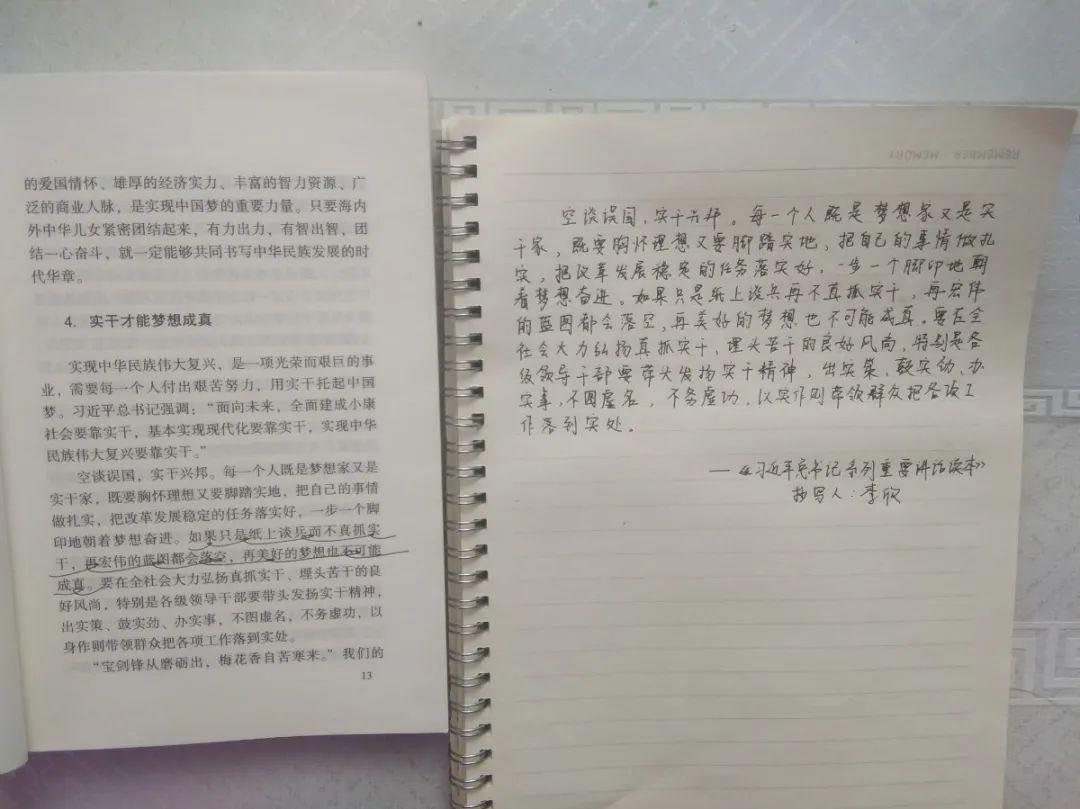 的爱国情怀、雄厚的经济实力、丰富的智力资源、广
泛的商业人脉，是实现中国梦的重要力量。只要海内
外中华儿女紧密团结起来，有力出力，有智出智，团
结一心奋斗，就一定能够共同书写中华民族发展的时
代华章。
4. 实干才能梦想成真
实现中华民族伟大复兴，是一项光荣而艰巨的事
业，需要每一个人付出艰苦努力，用实干托起中国
梦。习近平总书记强调：“面向未来，全面建成小康
社会要靠实干，基本实现现代化要靠实干，实现中华
民族伟大复兴要靠实干。”
空谈误国，实干兴邦。每一个人既是梦想家又是
实干家，既要胸怀理想又要脚踏实地，把自己的事情
做扎实，把改革发展稳定的任务落实好，一步一个脚
印地朝着梦想奋进。如果只是纸上谈兵而不真抓实
干，再宏伟的蓝图都会落空，再美好的梦想也不可能
成真。要在全社会大力弘扬真抓实干、埋头苦干的良
好风尚，特别是各级领导干部要带头发扬实干精神，
出实策、鼓实劲、办实事，不图虚名，不务虚功，以
身作则带领群众把各项工作落到实处。
“宝剑锋从磨砺出，梅花香自苦寒来。”我们的
13
REMEMBER · MEMORY
空谈误国，实干兴邦。每一个人既是梦想家又是实
干家，既要胸怀理想又要脚踏实地，把自己的事情做扎
实，把改革发展稳定的任务落实好，一步一个脚印地朝
着梦想奋进。如果只是纸上谈兵再不真抓实干，再宏伟
的蓝图都会落空，再美好的梦想也不可能成真。要在全
社会大力弘扬真抓实干、埋头苦干的良好风尚，特别是各
级领导干部要带头发扬实干精神，出实策、鼓实劲、办
实事，不图虚名，不务虚功，以实作则带领群众把各项工
作落到实处。
——《习近平总书记系列重要讲话读本》
抄写人：李欣